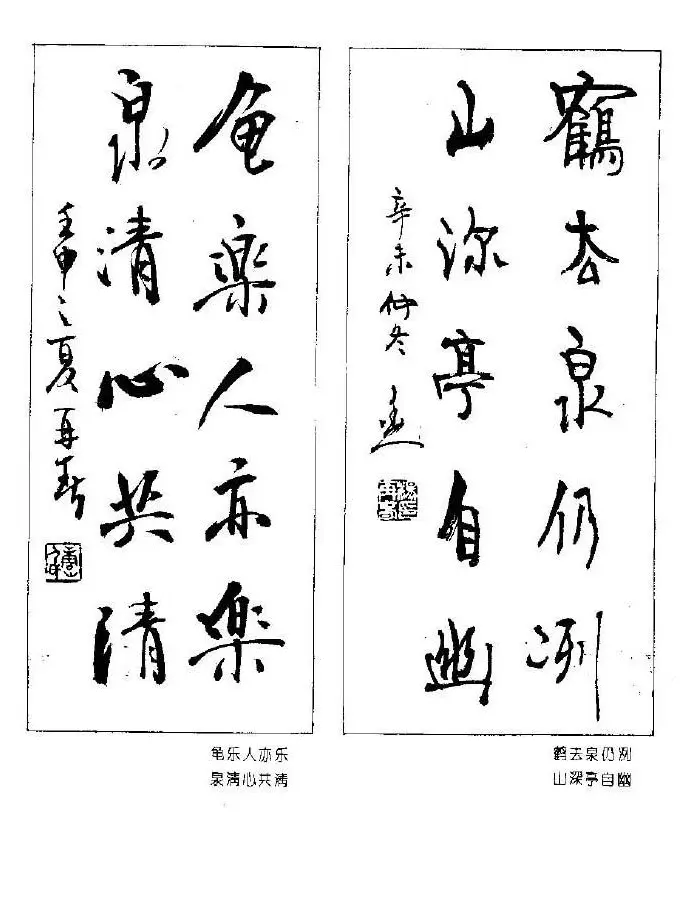 鶴去泉仍冽
山深亭自幽
辛未仲冬
龟楽人亦楽
泉清心共清
壬申之夏再春
鹤去泉仍冽
山深亭自幽
龟乐人亦乐
泉清心共清